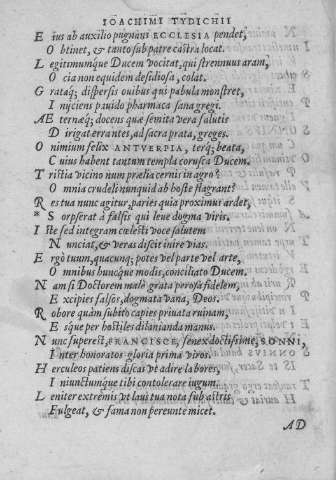 IOACHIMI TYDICHII
E ius ab auxilio pugnans ECCLESIA pendet,
O btinet, & tanto sub patre castra locat.
L egitimumque Ducem vocitat, qui strennuus aram,
O cia non equidem desidiosa, colat.
G rataq; dispersis ouibus qui pabula monstret,
I nijciens pauido pharmaca sana gregi.
AE ternæq; docens quæ semita vera salutis
D irigat errantes, ad sacra prata, greges.
O nimium felix ANTVERPIA, terq; beata,
C uius habent tantum templa corusca Ducem.
T ristia vicino num prælia cernis in agro?
O mnia crudeli nunquid ab hoste flagrant?
R es tua nunc agitur, paries quia proximus ardet,
* S orpserat à falsis qui leue dogma viris.
I ste sed integram cœlesti voce salutem
N unciat, & veras discit inire vias.
E rgò tuum, quacunq; potes vel parte vel arte,
O mnibus huncque modis, conciliato Ducem.
N am si Doctorem malè grata perosa fidelem,
E xcipies falsos, dogmata vana, Deos.
R obore quàm subitò capies priuata ruinam,
E sque per hostiles dilanianda manus.
N unc superest, FRANCISCE, senex doctissime, SONNI,
I nter honoratos gloria prima viros.
H erculeos patiens discas vt adire labores,
I niunctumque tibi contolerare iugum.
L eniter extremis vt laui tua nota sub astris
Fulgeat, & fama non pereunte micet.
AD